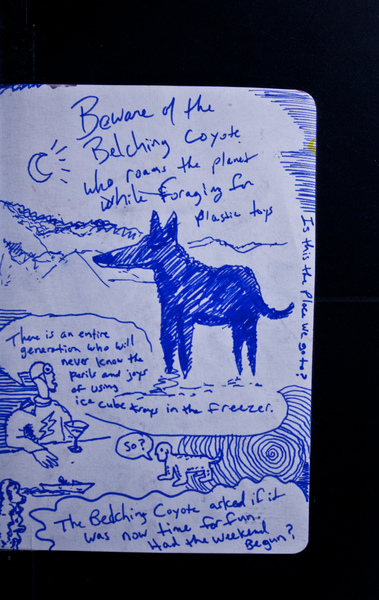 Beware of the
Belching Coyote
who roams the planet
while foraging for
plastic toys
Is this the place we go to?
There is an entire
generation who will
never know the
perils and joys
of using
ice cube trays in the freezer.
so?
The Belching Coyote asked if it
was now time for fun.
Had the weekend
Begun?